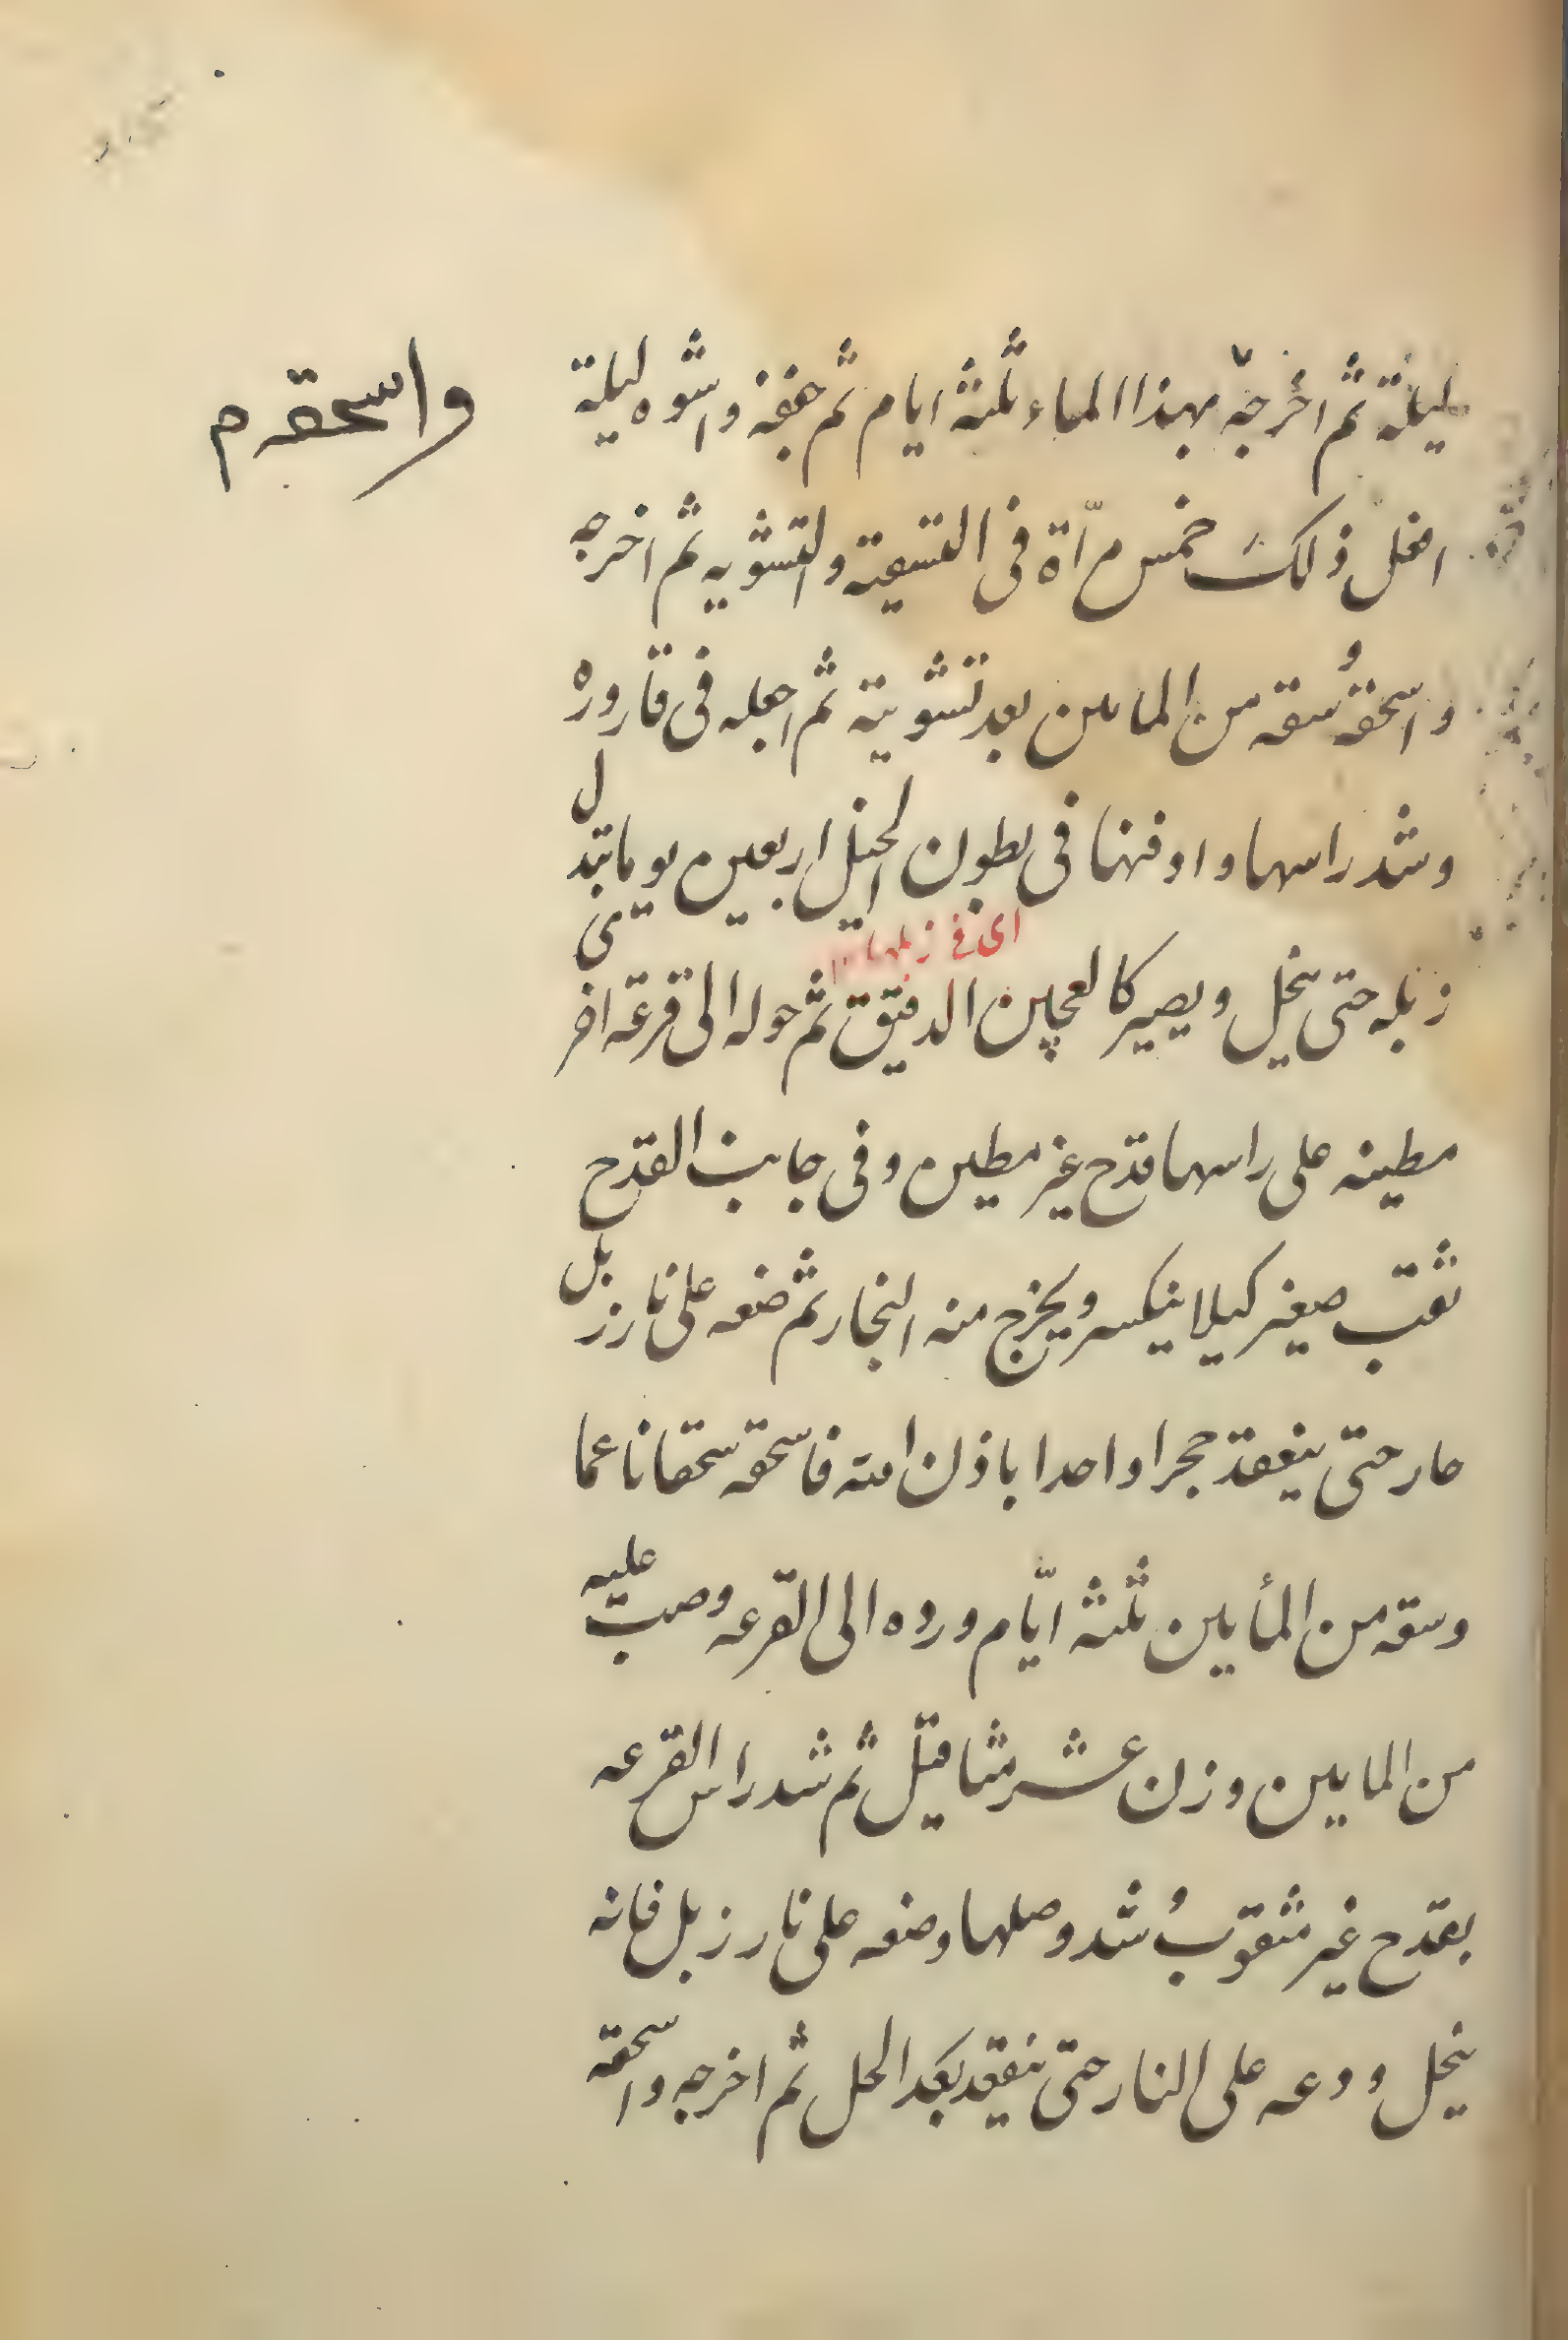 ليلة ثم اخرجه بهذا الماء ثلثة ايام ثم جففه واشوه ليلة
واسحقه م
افعل ذلك خمس مرّاة فى التسقية والتشويه ثم اخرجه
واسحقه وسقه من الماىىن بعد تشويته ثم اجعله فى قاروره
وشد راسها وادفنها فى بطون الخيل اربعين يوما تبدل
اى فى زبلها
زبله حتى ينحل ويصير كالعجين الدقيق ثم حوله الى قرعة اخرى
مطينه على راسها قدح غير مطين وفى جانب القدح
ثقب صغير كيلا ينكسر ويخرج منه البخار ثم ضعه على نار زبل
حار حتى ينعقد حجرا واحدا باذن الله فاسحقه سحقا ناعما
وسقه من المأيين ثلثة ايّام ورده الى القرعه وصب عليه
من المايين وزن عشر مثاقيل ثم شد راس القرعه
بقدح غير مثقوب وشد وصلها وضعه على نار زبل فانه
ينحل ودعه على النار حتى ينعقد بعد الحل ثم اخرجه واسحقه